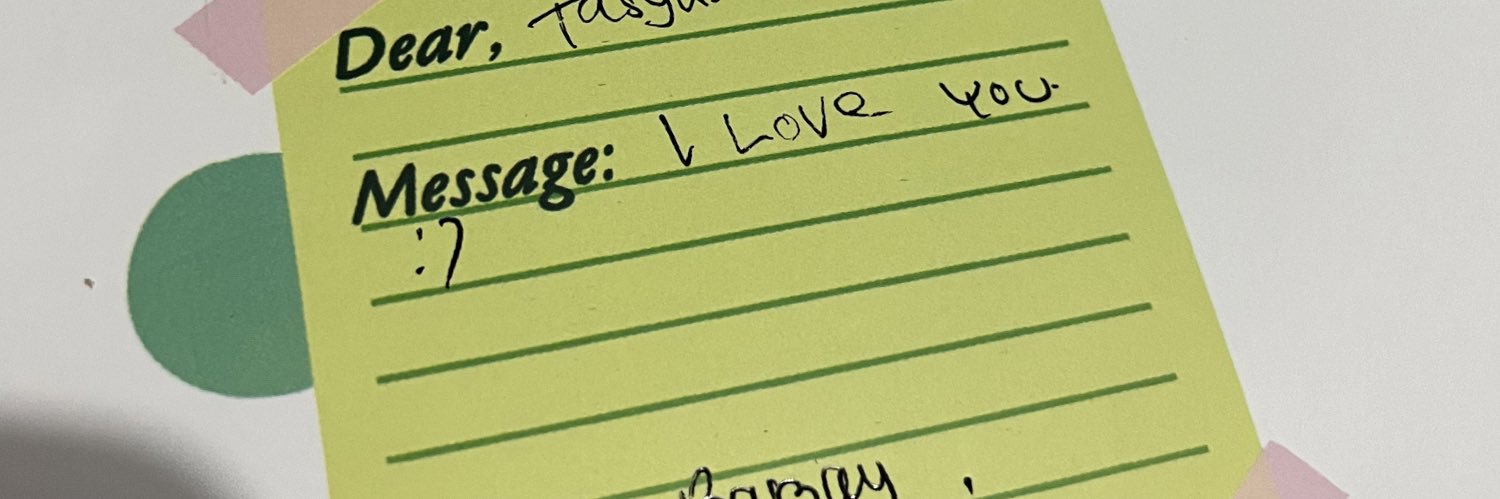 Dear,
Message: I Love you.
:)